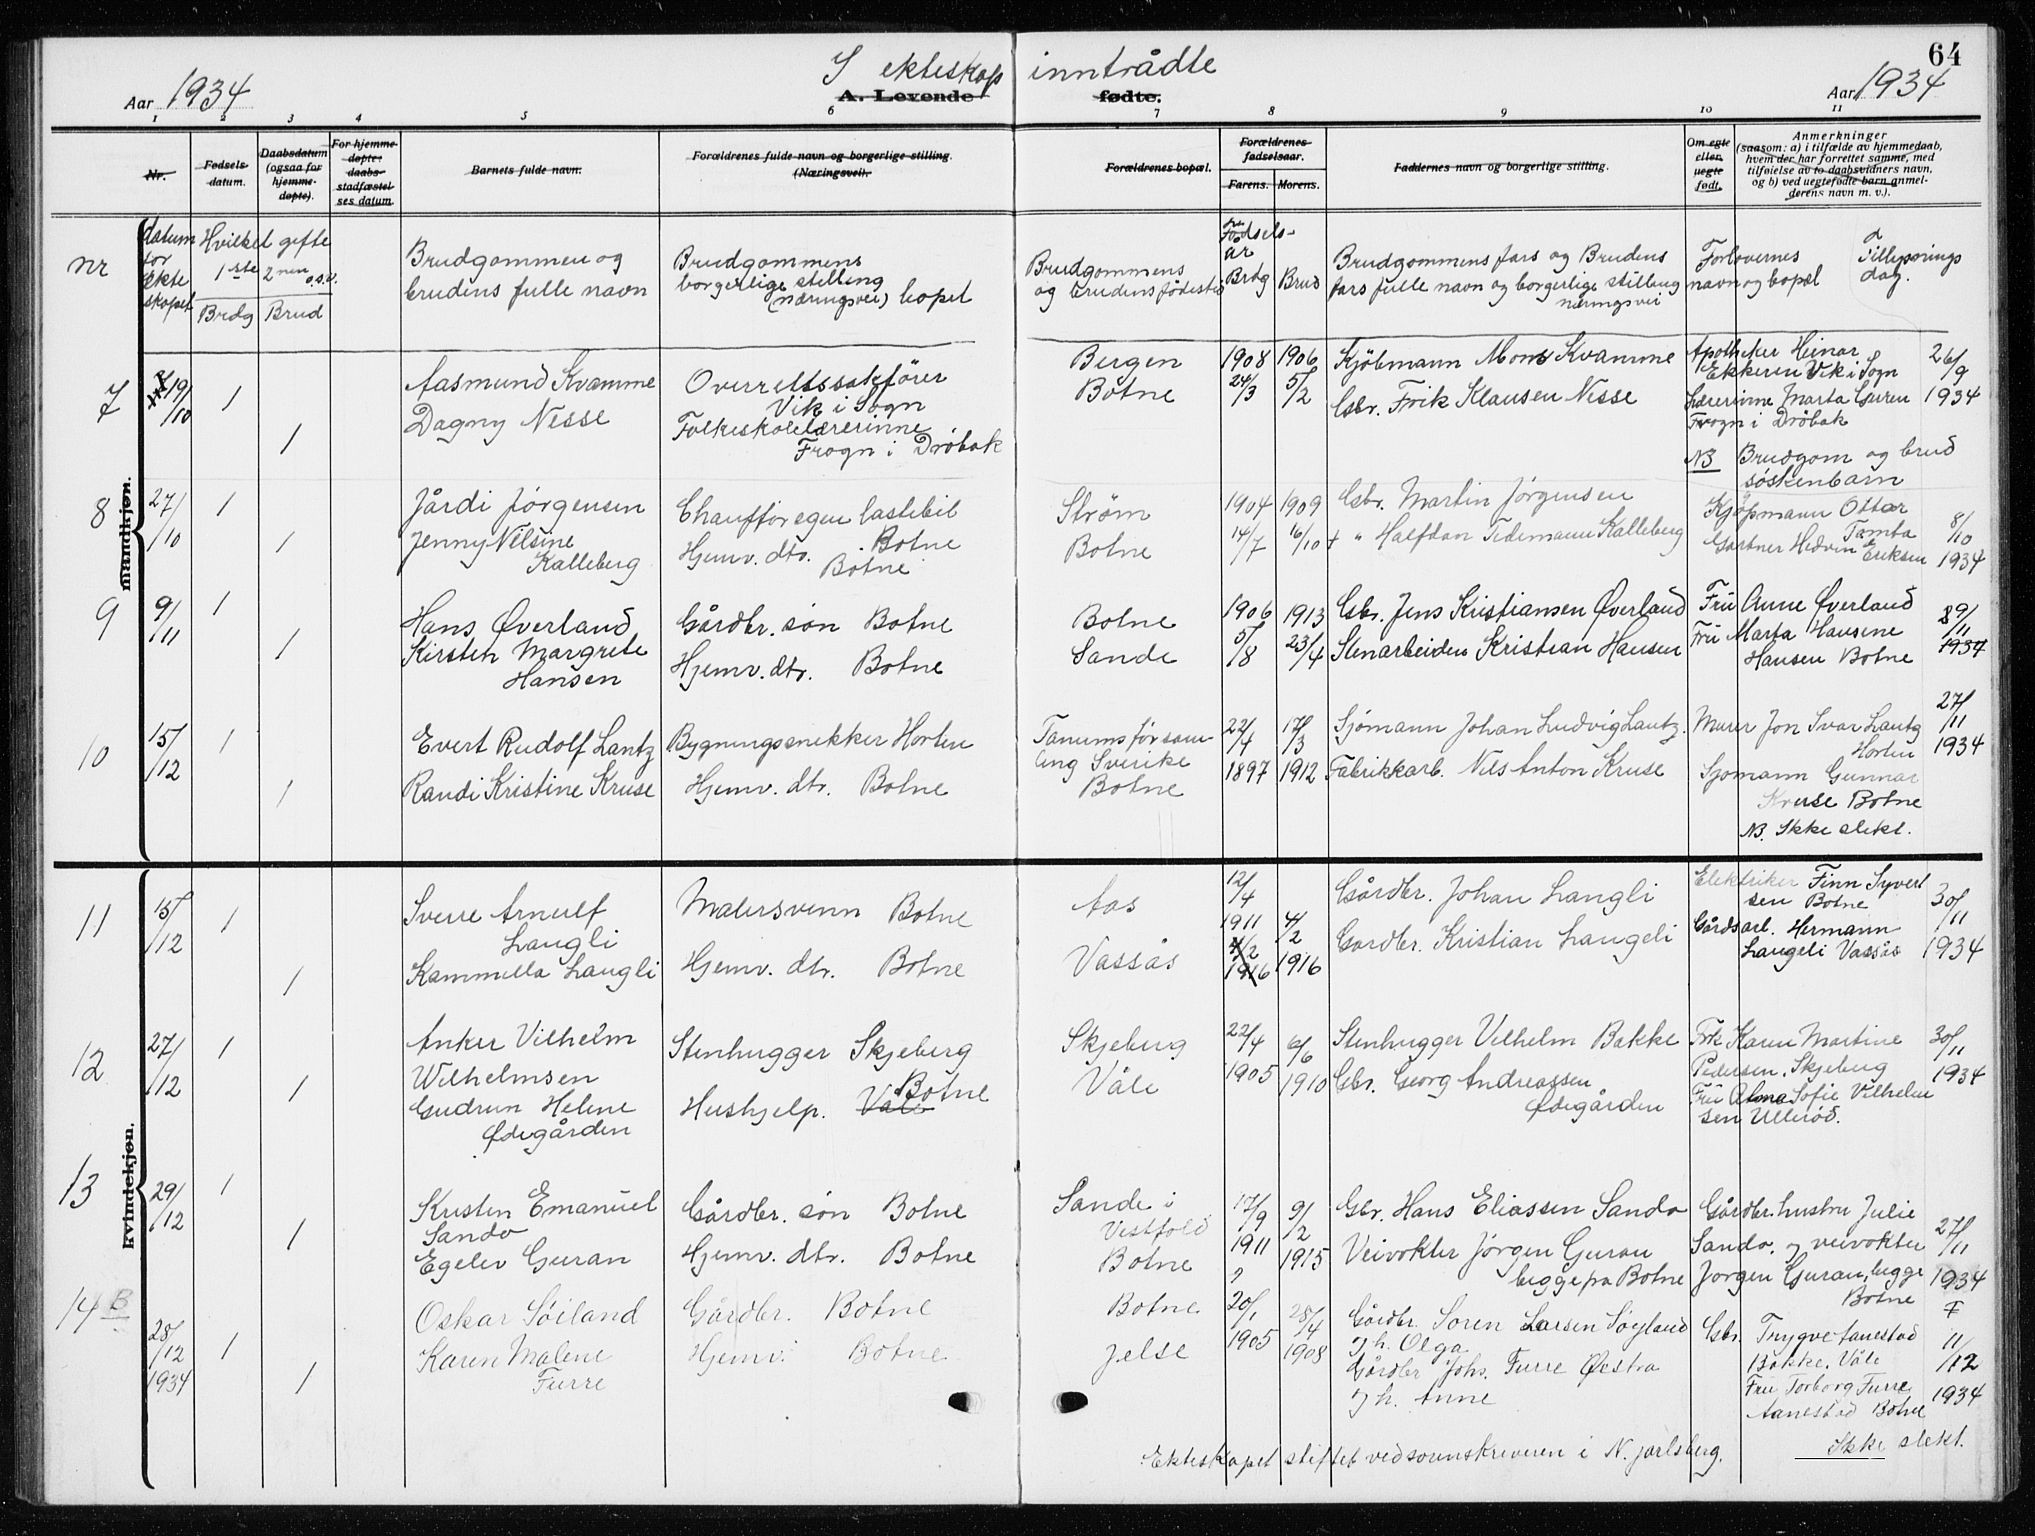 64
I ekteskap inntrådte
Aar 1934
A. Levende fødte.
Aar 1934
1 2 3 4 5 6 7 8 9 10 11
Nr.
Fødsels-datum.
Daabsdatum (ogsaa for hjemme-døpte).
For hjemme-døpte: daabs-stadfæstel-ses datum
Barnets fulde navn.
Forældrenes fulde navn og borgerlige stilling. (Næringsvei).
Forældrenes bopæl.
Forældrenes fødselsaar.
Farens. Morens.
Faddernes navn og borgerlige stilling.
Om egte eller uegte født.
Anmerkninger (saasom: a) i tilfælde av hjemmedaab, hvem der har forrettet samme, med tilføielse av to daabsvidners navn, og b) ved uegtefødte barn anmel-derens navn m. v.).
nr
datum for ekteskapet
Hvilket gifte 1ste 2nen o.s.v.
Brdg Brud
Brudgommen og brudens fulle navn
Brudgommens borgerlige stilling (næringsvei) bopel
Brudgommens og brudens fødested
Fødsels-år
Brdg Brud
Brudgommens fars og Brudens fars fulle navn og borgerlige stilling næringsvei
Forlovernes navn og bopel
Tillysnings dag.
mandkjøn.
7 19/10 1
Aasmund Kvamme
Overrettssakfører Vik i Sogn
Bergen
1908 24/3
1906 5/2
Kjøbmann Mons Kvamme
Apotheker Heinar Ekkeren Vik i Sogn
26/9 1934
1
Dagny Nesse
Folkeskolelærerinne Frogn i Drøbak
Botne
Gbr. Frik Klausen Nesse
Lærerinne Marta Guren
Frogn i Drøbak
NB Brudgom og brud søskenbarn
8 27/10 1
Jårdi Jørgensen
Chauffør egen lastebil Botne
Strøm
1904 14/7
1909 16/10
Gbr. Martin Jørgensen
Kjøpmann Ottar Tamta
8/10 1934
1
Jenny Nilsine Kalleberg
Hjemv. dtr. Botne
Botne
+ " Halfdan Tidemann Kalleberg
Gartner Hedvin Eriksen
9 9/11 1
Hans Øverland
Gårdbr. søn Botne
Botne
1906 5/8
1913 23/4
Gbr. Jens Kristiansen Øverland
Fru Anne Øverland
9/11 1934
1
Kirsten Margrete Hansen
Hjemv. dtr. Botne
Sande
Stenarbeider Kristian Hansen
Fru Marta Hausene Hansen Botne
10 15/12 1
Evert Rudolf Lantz
Bygningssnekker Horten
Tanums församling Sverike
22/4 1897
17/3 1912
Sjømann Johan Ludvig Lantz.
Murer Jon Ivar Lantz Horten
27/11 1934
1
Randi Kristine Kruse
Hjemv. dtr. Botne
Botne
Fabrikkarb. Nils Anton Kruse
Sjømann Gunnar Kruse Botne
NB. Ikke slekt.
kvindekjøn.
11 15/12 1
Sverre Arnulf Langli
Malersvenn Botne
Aas
12/4 1911
4/2 1916
Gårdbr. Johan Langli
Elektriker Finn Syvertsen Botne
30/11 1934
1
Kammilla Langli
Hjemv. dtr. Botne
Vassås
4/2 1916
Gardbr. Kristian Langeli
Gårdsarb. Hermann Langeli Vassås
12 27/12 1
Anker Vilhelm Wilhelmsen
Stenhugger Skjeberg
Skjeberg
22/4 1905
6/6 1910
Stenhugger Vilhelm Bakke
Frk Karen Martine Pedersen, Skjeberg
30/11 1934
1
Gudrun Helene Ødegården
Hushjelp. Våle Botne
Våle
Gbr. Georg Andreassen Ødegården
Fru Alma Sofie Vilhelmsen Ullerød.
13 29/12 1
Kristen Emanuel Sando
Gårdbr. søn Botne
Sande i Vestfold
17/9 1911
9/2 1915
Gbr. Hans Eliassen Sando
Gårdbr. hustru Julie Sando, og veivokter
27/11 1934
1
Egelev Guran
Hjemv. dtr. Botne
Botne
Veivokter Jørgen Guran begge fra Botne
Jørgen Guran, begge Botne
14 B 28/12 1934 1
Oskar Søiland
Gårdbr. Botne
Botne
20/1 1905
28/4 1908
Gårdbr. Soren Larsen Søyland
I h. Olga
Gbr. Trygve Aanestad Bakke, Våle
11/12 1934
1
Karen Malene Furre
Hjemv. Botne
Jelse
Gårdbr Johs. Furre Østra
I h. Anne
Fru Torborg Furre Aanestad Botne
Ikke slekt.
Ekteskapet stiftet ved sorenskriveren i N. Jarlsberg.